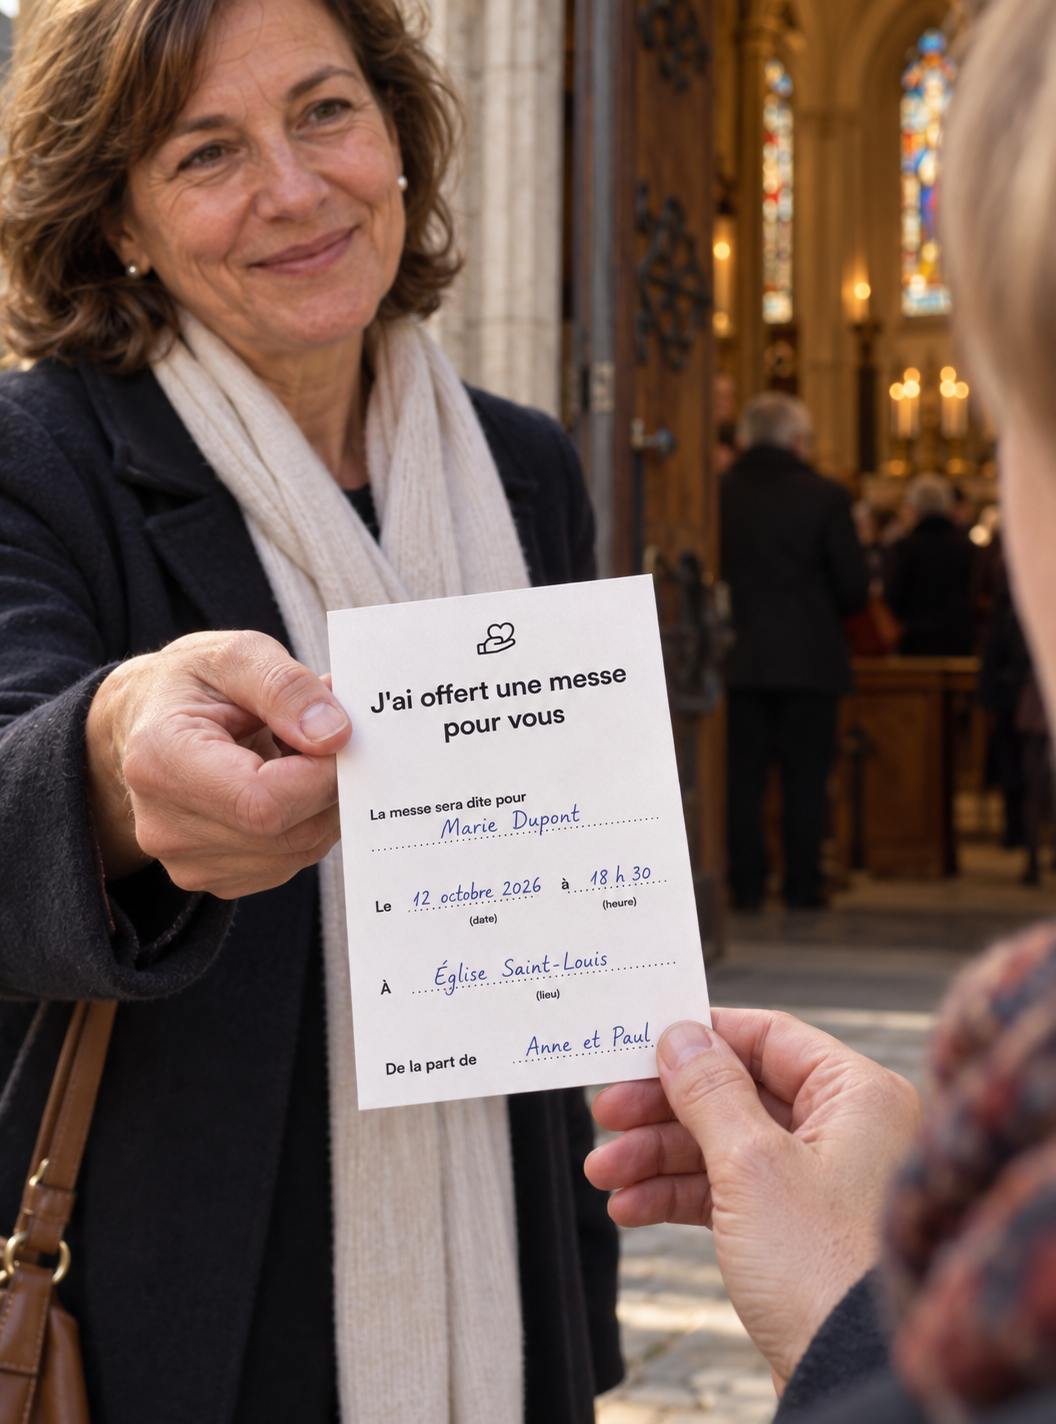 J'ai offert une messe
pour vous
La messe sera dite pour
Marie Dupont
Le 12 octobre 2026 à 18 h 30
(date) (heure)
À Église Saint-Louis
(lieu)
De la part de Anne et Paul